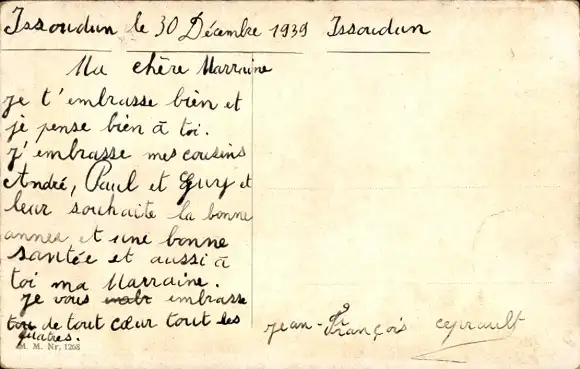 Issoudun le 30 Décembre 1939 Issoudun
Ma chère Marraine
je t'embrasse bien et
je pense bien à toi.
J'embrasse mes cousins
André, Paul et Guy et
leur souhaite la bonne
annes et une bonne
santée et aussi à
toi ma Marraine.
je vous embrasse
de tout cœur tout les
quatres.
jean-François
M. M. Nr. 1268